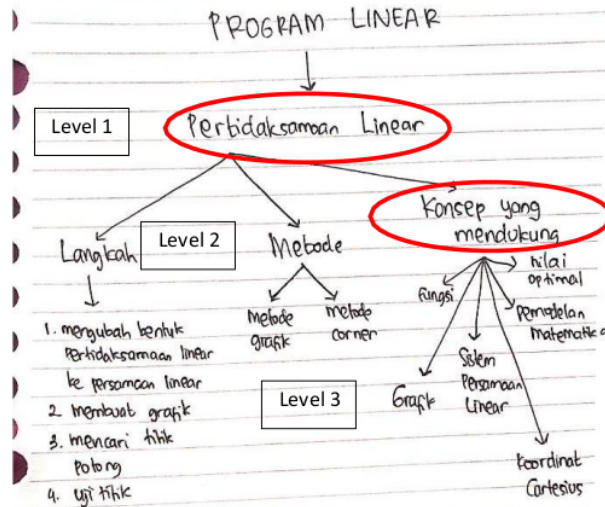 PROGRAM LINEAR
Level 1
Pertidaksamaan Linear
Langkah
Level 2
Metode
Konsep yang
mendukung
1. mengubah bentuk
Pertidaksamaan linear
ke persamaan linear
2 membuat grafik
3. mencari titik
potong
4. uji titik
metode
grafik
metode
corner
Level 3
Fungsi
nilai
optimal
pemodelan
Matematika
Grafik
Sistem
Persamaan
Linear
Koordinat
Cartesius